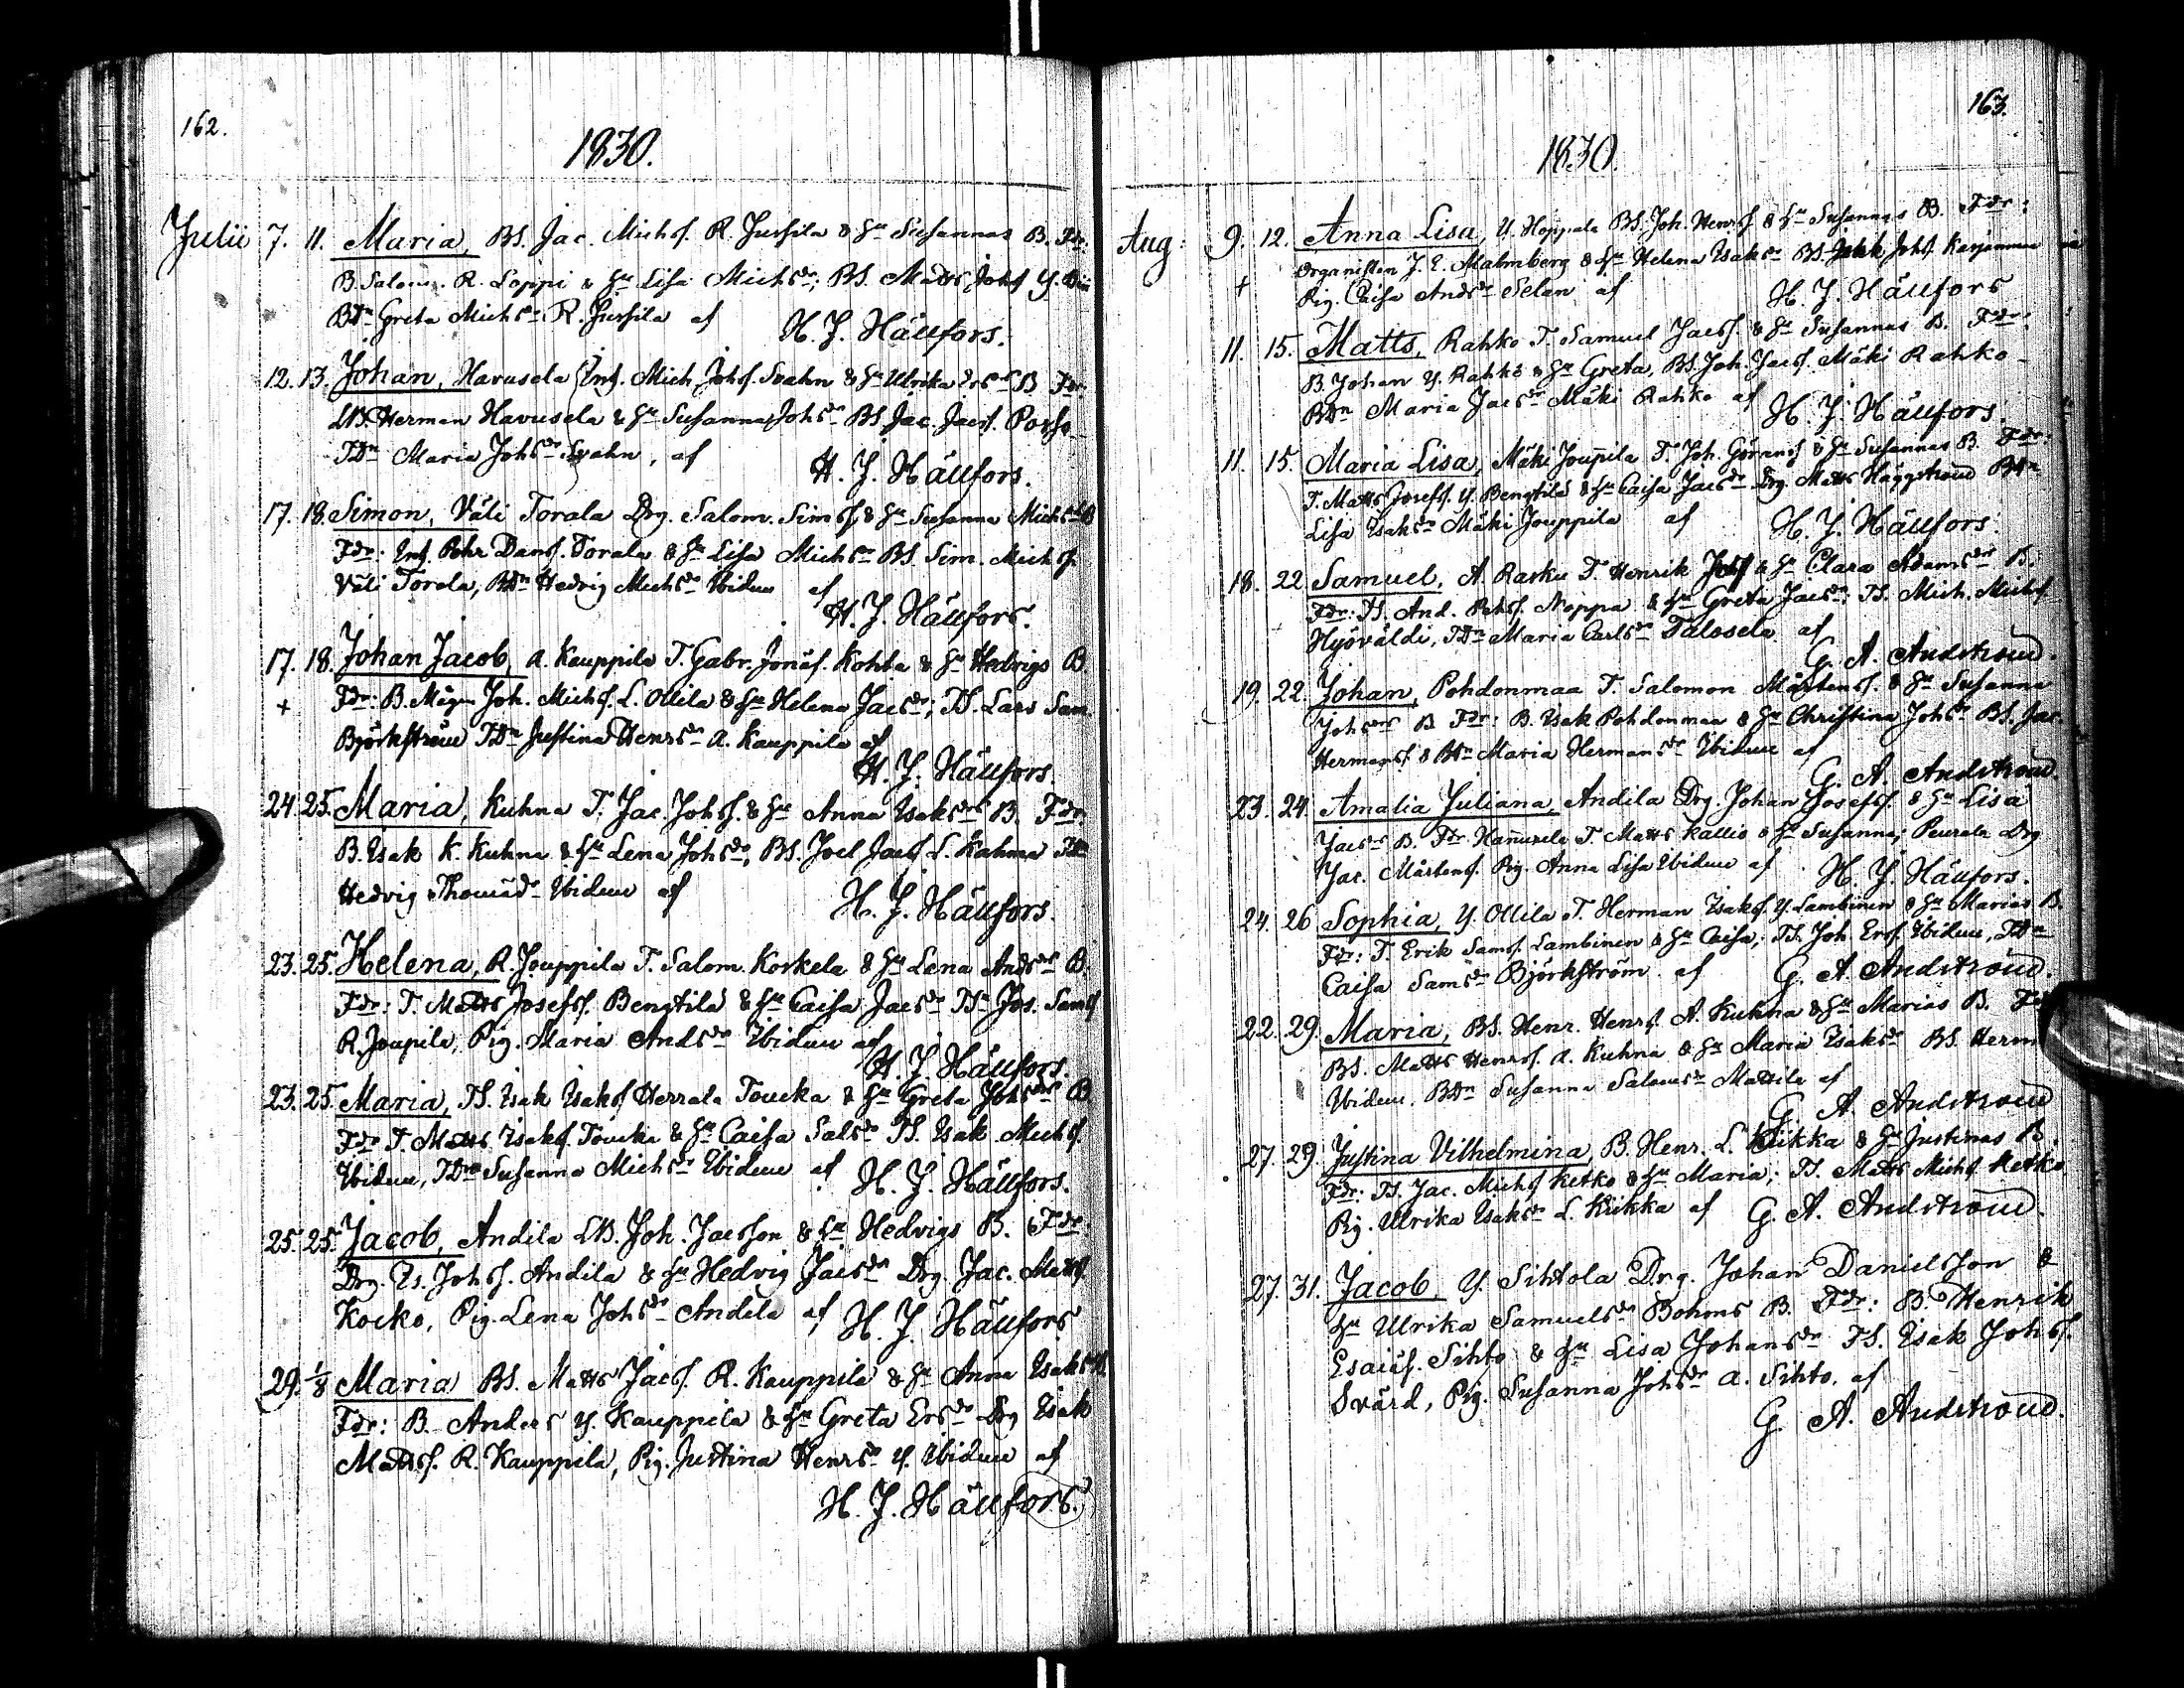 162.
1830.
Julii 7. 11. Maria, BS. Jac. Michsf. R. Jussila & Hu Susannas B. Fdr:
B. Salom. R. Loppi & Hu Lisa Michsdr; BS. Matts Johsf Y.
BDr Greta Michsdr R. Jussila af H. J. Hällfors.
12. 13. Johan, Havusela Inh. Mich. Johsf. Svahn & Hu Ulrika Ersdrs B. Fdr:
LB. Herman Havusela & Hu Susanna Johsdr BS. Jac. Jacsf. Porho
TDr Maria Johsdr Svahn, af
H. J. Hällfors.
17. 18. Simon, Väli Torala Drg. Salom. Simsf & Hu Susanna Michsdrs B
Fdr: Inh. Pehr Dansf. Torala & Hu Lisa Michsdr BS. Sim. Michsf.
Väli Torala, BDr Hedvig Michsdr Ibidem af
H. J. Hällfors.
17. 18. Johan Jacob, A. Kauppila T. Gabr. Jonäsf. Kohta & Hu Hedvigs B
+ Fdr: B. Måg Joh. Michsf. L. Ollila & Hu Helena Jacsdr; TS. Lars Sam.
Björkström TDr Justina Henrsdr A. Kauppila af
H. J. Hällfors.
24. 25. Maria, Kuhna T. Jac. Johsf. & Hu Anna Isaksdrs B. Fdr:
B. Isak K. Kuhna & Hu Lena Johsdr, BS. Joel Jacsf. L. Kahma TDr
Hedvig Thomasdr Ibidem af H. J. Hällfors.
23. 25. Helena, R. Jouppila T. Salom. Korkela & Hu Lena Andsdrs B.
Fdr: T. Matts Josefsf. Bengtila & Hu Caisa Jacsdr TSn Jos. Samsf
R. Joupila, Pig. Maria Andsdr Ibidem af
H. J. Hällfors.
23. 25. Maria, TS. Isak Isaksf Herrala Toucka & Hu Greta Johsdrs B
Fdr T. Matts Isaksf. Toucka & Hu Caisa Salsdr TS. Isak Michsf.
Ibidem, TDr Susanna Michsdr Ibidem af H. J. Hällfors.
25. 25. Jacob, Andila LB. Joh. Jacsson & Hu Hedvigs B. Fdr:
Drg. Is. Johsf. Andila & Hu Hedvig Jacsdr Drg. Jac. Mattsf.
Kocko, Pig. Lena Johsdr Andila af H. J. Hällfors
29. 1/8 Maria BS. Matts Jacsf. R. Kauppila & Hu Anna Isaksdrs B.
Fdr: B. Anders Y. Kauppila & Hu Greta Ersdr Drg Isak
Mattsf. R. Kauppila, Pig. Justina Henrsdr Y. Ibidem af
H. J. Hällfors.
163.
1830.
Aug: 9. 12. Anna Lisa, Y. Hoppala BS. Joh. Henrsf & Hu Susannas B. Fdr:
+ Organisten J. E. Malmberg & Hu Helena Isaksdr BS. Johsf. Karjanmaa
Pig. Caisa Andsdr Selan af H. J. Hällfors
11. 15. Matts, Rahko T. Samuel Jacsf. & Hu Susannas B. Fdr:
B. Johan Y. Rahko & Hu Greta, BS. Joh. Jacsf. Mäki Rahko
BDr Maria Jacsdr Mäki Rahko af H. J. Hällfors.
11. 15. Maria Lisa, Mäki Joupila T. Joh. Göransf & Hu Susannas B. Fdr:
T. Matts Josefsf. Y. Bengtila & Hu Caisa Jacsdr Drg. Matts Häggström BDr
Lisa Isaksdr Mäki Jouppila af H. J. Hällfors.
18. 22. Samuel, A. Rasku T. Henrik & Hu Clara Adamsdrs B.
Fdr: TS. And. Pehsf. Noppa & Hu Greta Jacsdr; TS. Mich. Michsf.
Hyöväldi, TDr Maria Carlsdr Talosela af
G. A. Andström.
19. 22. Johan, Pohdonmaa T. Salomon Mårtensf. & Hu Susanna
Johsdrs B Fdr: B. Isak Pohdonmaa & Hu Christina Johsdr BS. Jac.
Hermansf. & BDr Maria Hermansdr Ibidem af
G. A. Andström
23. 24. Amalia Juliana, Andila Drg. Johan Josefsf. & Hu Lisa
Jacsdrs B. Fdr. T. Matts Kallio & Hu Susanna; Peurala Drg
Jac. Mårtensf. Pig. Anna Lisa Ibidem af H. J. Hällfors.
24. 26 Sophia, Y. Ollila T. Herman Isaksf. Y. Lambinen & Hu Marias B.
Fdr: T. Erik Samsf. Lambinen & Hu Caisa; TS. Joh. Ersf. Ibidem, TDr
Caisa Samsdr Björkström. af G. A. Andström.
22. 29. Maria, BS. Henr. Henrsf. A. Kuhna & Hu Marias B. Fdr
BS. Matts Henrsf. A. Kuhna & Hu Maria Isaksdr BS. Herm
Ibidem. BDr Susanna Salomsdr Mattila af
G. A. Andström
27. 29. Justina Vilhelmina, B. Henr. L. Kiikka & Hu Justinas B.
Fdr: TS. Jac. Michsf Ketko & Hu Maria; TS. Matts Michsf Ketko
Pig. Ulrika Isaksdr L. Kiikka af G. A. Andström.
27. 31. Jacob, Y. Sihtola Drg. Johan Danielsson &
Hu Ulrika Samuelsdr Bohms B. Fdr: B. Henrik
Esaiäsf. Sihto & Hu Lisa Johansdr TS. Isak Johsf.
Svärd, Pig. Susanna Johsdr A. Sihto. af
G. A. Andström.